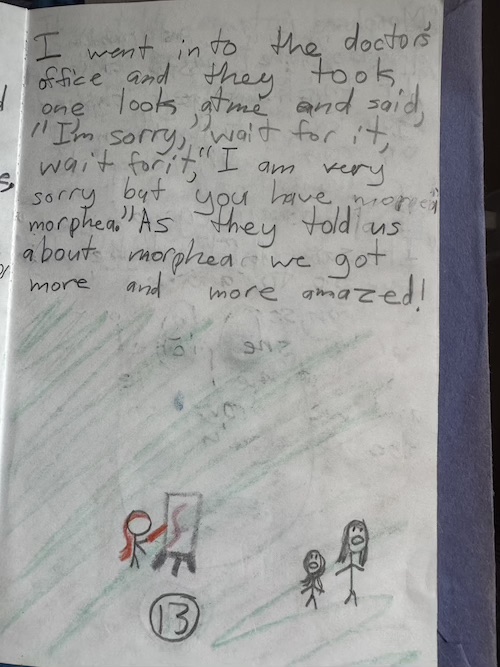 I went into the doctor's
office and they took
one look at me and said,
"I'm sorry," wait for it,
wait for it, "I am very
sorry but you have
morphea." As they told us
about morphea we got
more and more amazed!
13